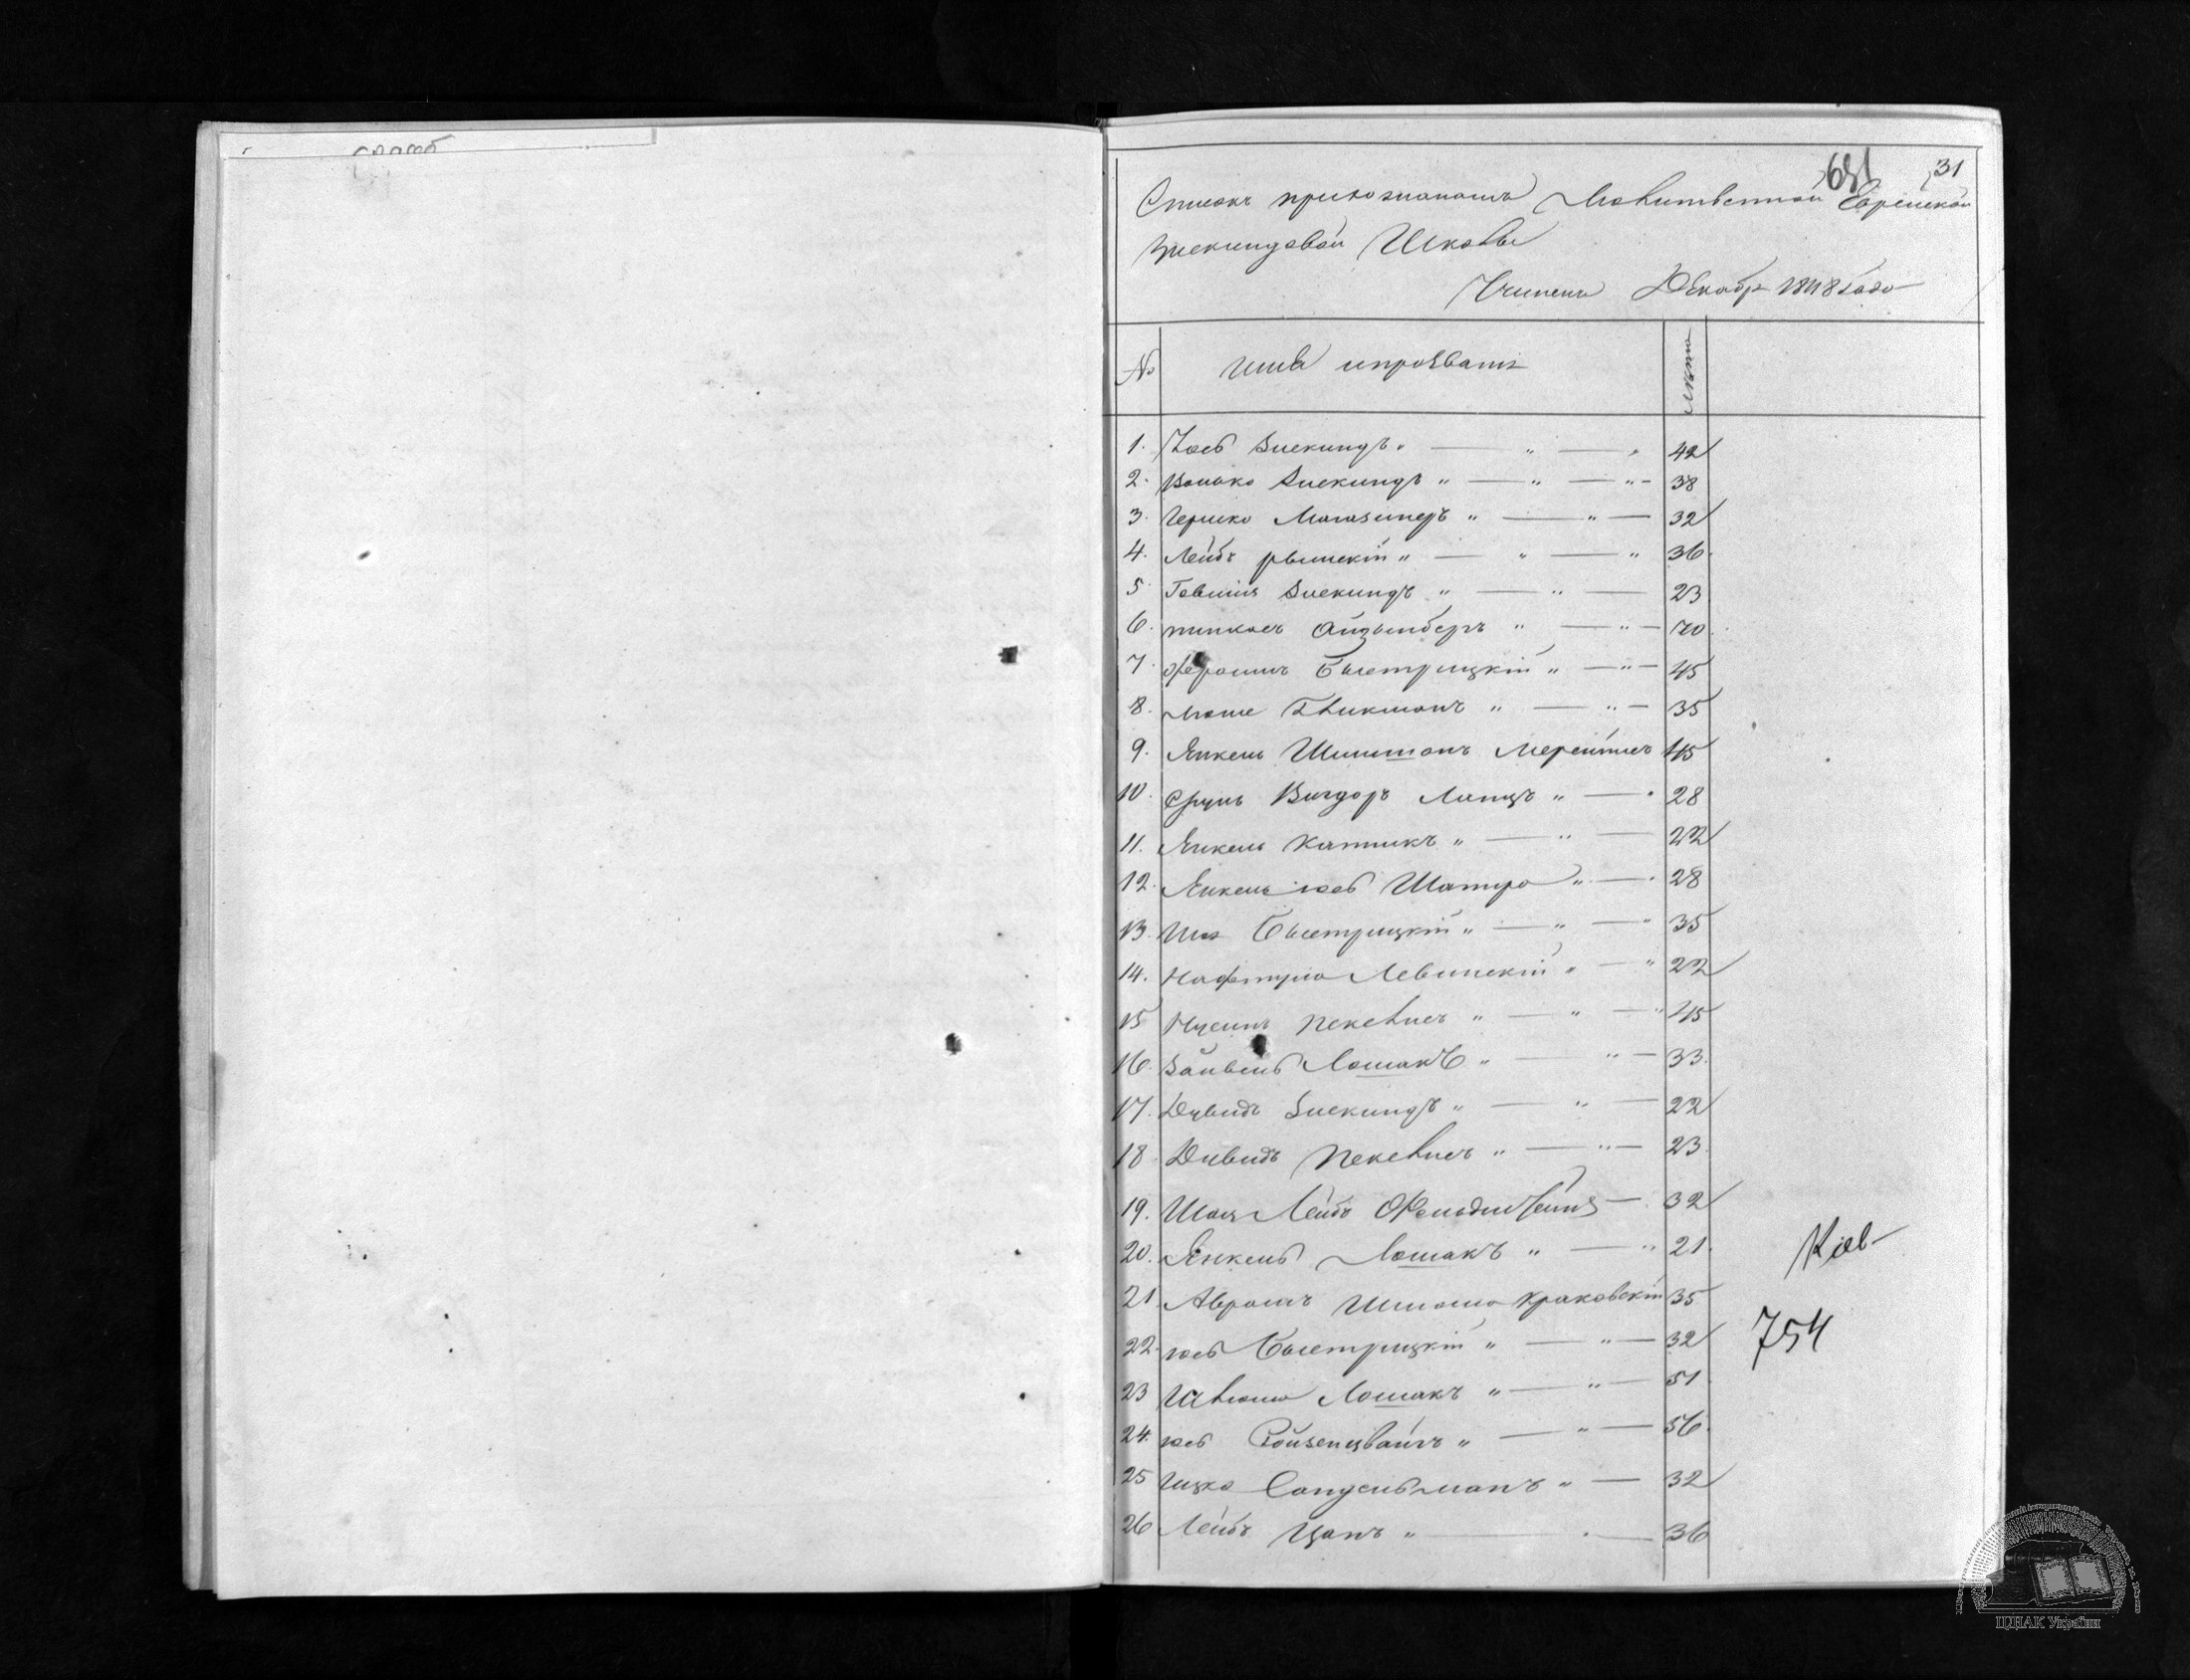 31
651
Списокъ прихожановъ Молитвенной Еврейской
Зискиндовой Школы
Декабр 1848 Года
№ имя ипрозвание Лѣта
1. Іось Зискиндъ „ — „ — „ 42
2. Волько Зискиндъ „ — „ — „ – 38
3. Гершко Магазинеръ „ — „ — 32
4. Лейбъ рымскій „ — „ — „ 36.
5. Говшия Зискиндъ „ — „ — 23
6. пинкасъ Айзынберъ „ — „ – 70.
7. Фроимъ Быстрицкій „ — „ – 45
8. Моше Гликманъ „ — „ – 35
9. Янкель Шлиманъ Мерейнисъ 45
10. Сруль Вигдоръ Лапцъ „ — 28
11. Янкель Капникъ „ — „ — 22
12. Янкель іось Шапиро „ — 28
13. Быстрицкій „ — „ — „ 35
14. Нафтула Левинскій „ — „ 22
15 Нусинъ Пекелисъ „ — „ — „ 45
16. Зайвель Лошакъ „ — „ – 33.
17. Дувидъ Зискиндъ „ — „ — 22
18. Дувидъ Пекелисъ „ — „ — 23.
19. Шая Лейбъ Фельдштейнъ — 32
20. Янкель Лошакъ „ — „ 21.
21. Авромъ Шлома Краковскій 35
22. іось Быстрицкій „ — „ — 32
23 Шлема Лошакъ „ — „ — 51
24. іось Ройзенцвайгъ „ — „ — 56.
25 Ицко Сандельманъ „ — 32
26 Лейбъ Цапъ „ — 36
Кіев
754
ЦДІАК України